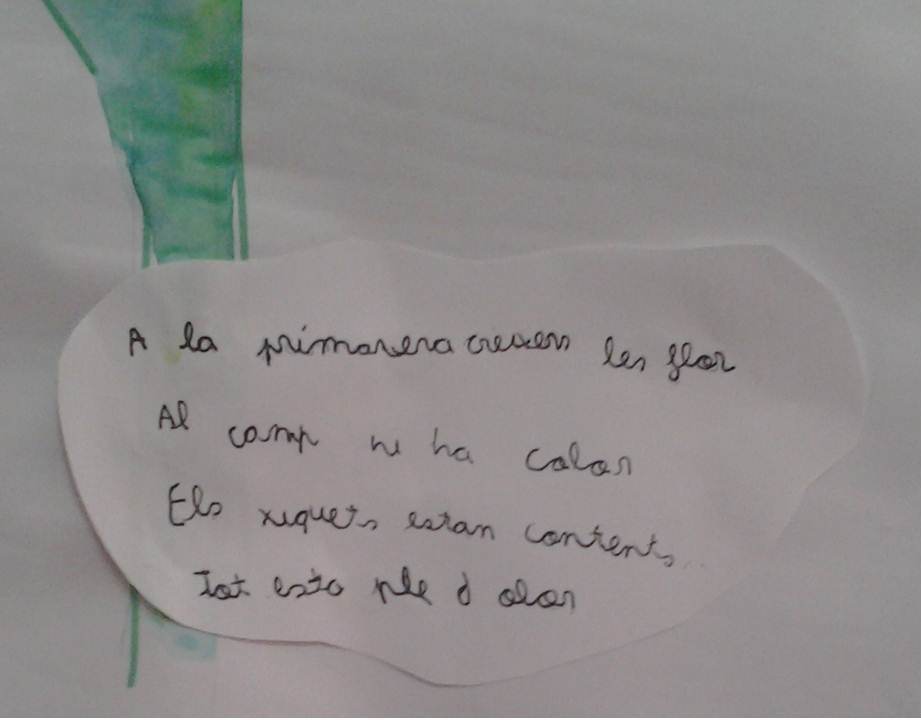 A la primavera creixen les flor
Al camp hi ha calor
Els xiquets estan contents
Tot esta ple d olor